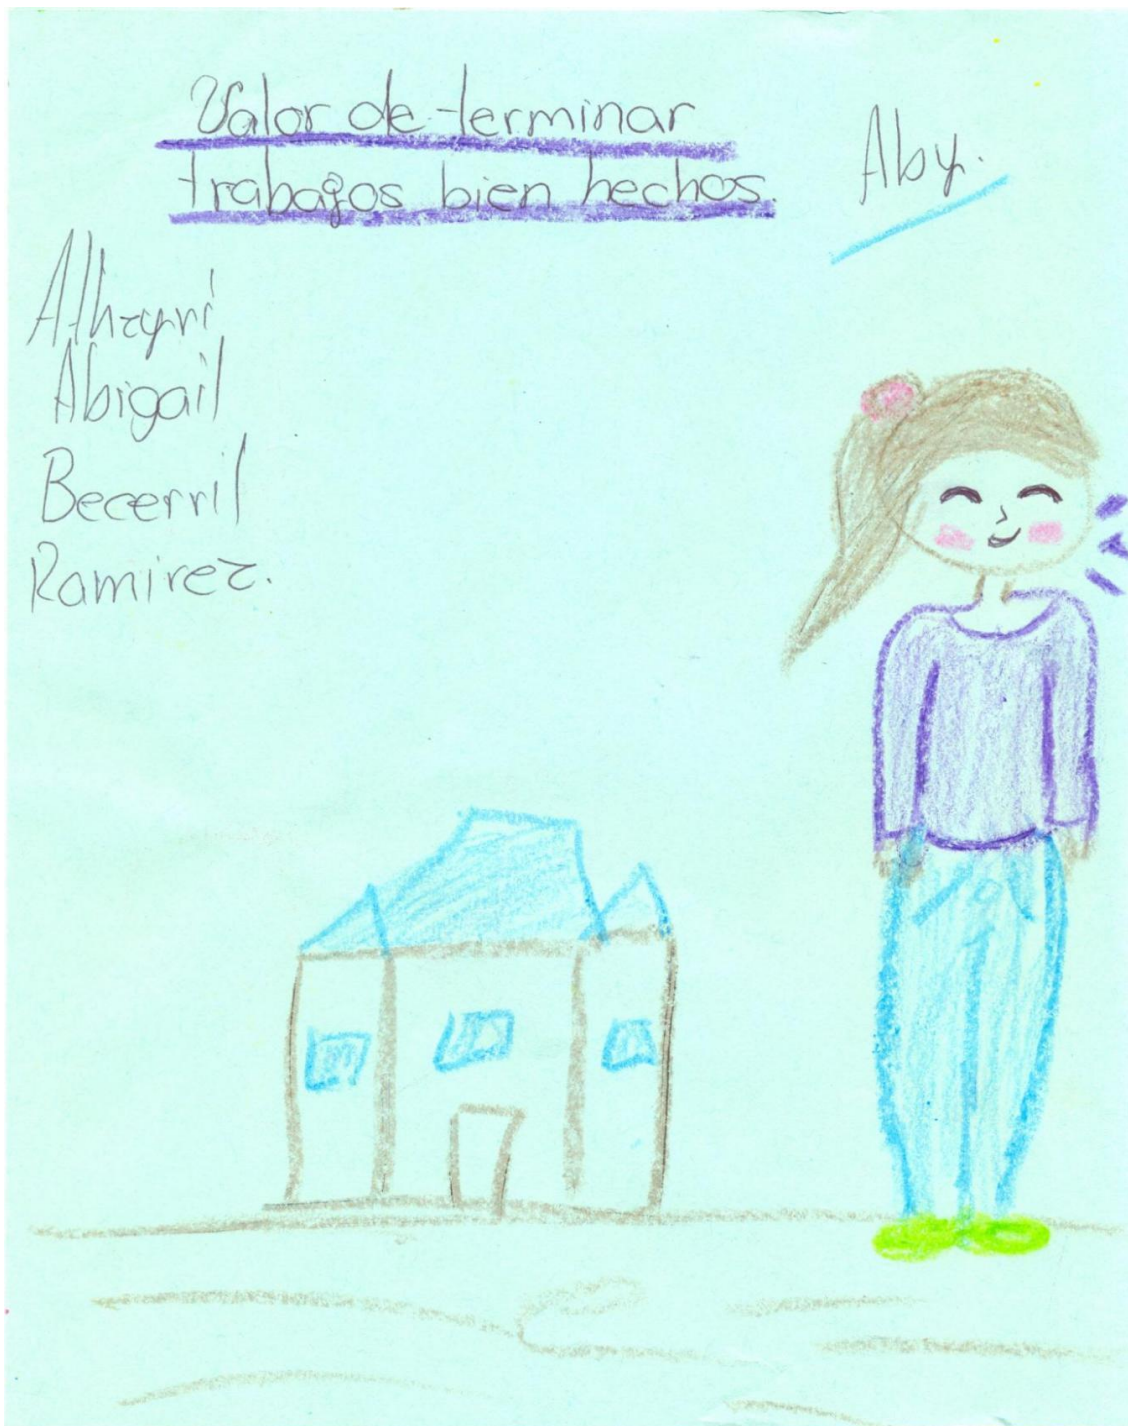 Valor de terminar
trabajos bien hechos.
Aby.
Abigail
Becerril
Ramirez.